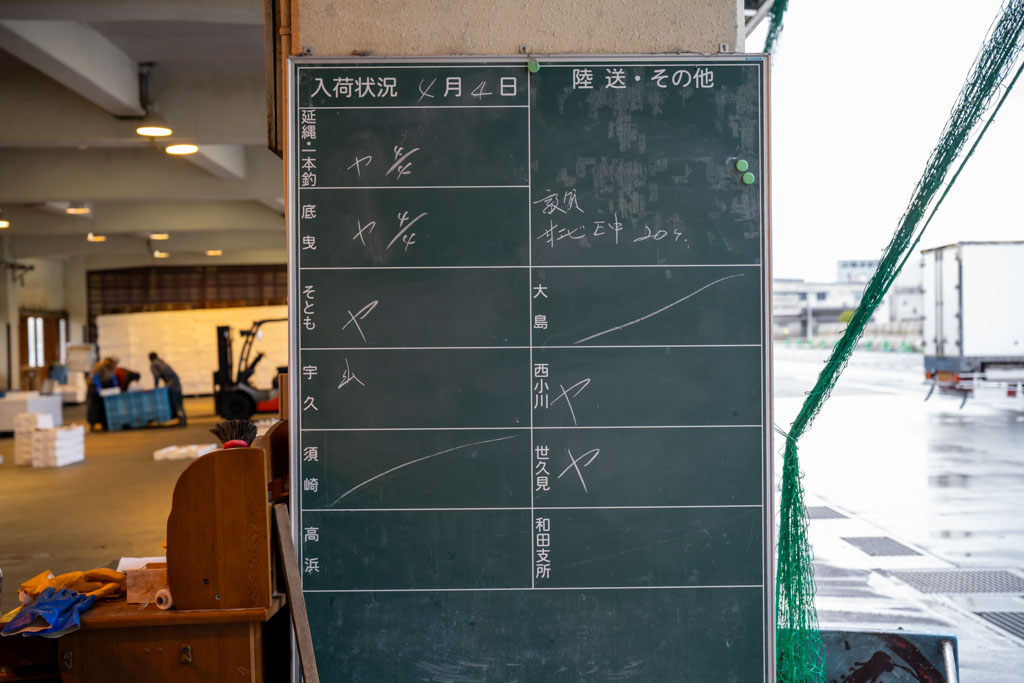 入荷状況 4月4日
陸送・その他
延縄・一本釣
ヤ 4/4
底曳
ヤ 4/4
敦賀
サゴシ 20
そとも
ヤ
大島
宇久
西小川
ヤ
須崎
世久見
ヤ
高浜
和田支所